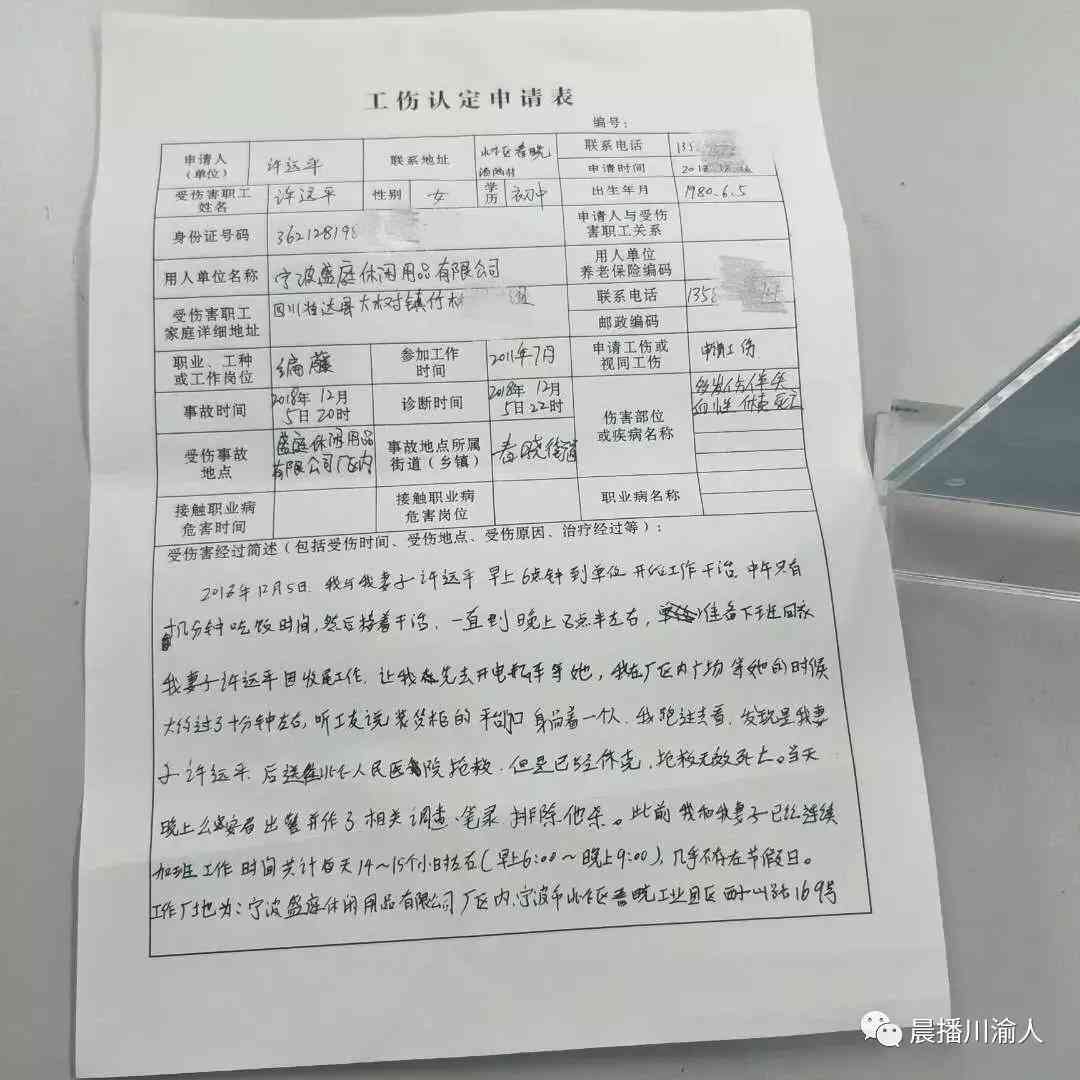 工伤认定申请表
编号：
申请人（单位） 许运平 联系地址 北仑区春晓 联系电话 135
申请时间 2018.
受伤害职工姓名 许运平 性别 女 学历 初中 出生年月 1980.6.5
身份证号码 362128198 申请人与受伤害职工关系
用人单位名称 宁波盛庭休闲用品有限公司 用人单位养老保险编码
受伤害职工家庭详细地址 四川省达县大树镇竹林 联系电话 1358
邮政编码
职业、工种或工作岗位 编藤 参加工作时间 2011年7月 申请工伤或视同工伤 申请工伤
事故时间 2018年12月5日20时 诊断时间 2018年12月5日22时 伤害部位或疾病名称
受伤事故地点 盛庭休闲用品有限公司厂区内 事故地点所属街道（乡镇） 春晓街道
接触职业病危害时间 接触职业病危害岗位 职业病名称
受伤害经过简述（包括受伤时间、受伤地点、受伤原因、治疗经过等）：
2018年12月5日.我与我妻子许运平早上6点钟到单位开始工作干活.中午只有
几分钟吃饭时间,然后接着干活.一直到晚上8点半左右,准备下班回家
我妻子许运平因收尾工作.让我先去开电瓶车等她,我在厂区内广场等她的时候
大约过了十分钟左右,听工友说装货柜的平台口躺着一个人.我跑过去看.发现是我妻
子许运平.后送北仑人民医院抢救.但是已经休克,抢救无效死亡。当天
晚上公安局出警并作了相关调查、笔录排除他杀。此前我和我妻子已经连续
加班工作时间共计每天14～15个小时左右(早上6:00～晚上9:00),几乎不存在节假日。
工作厂地为:宁波盛庭休闲用品有限公司厂区内,宁波市北仑区春晓工业园区西子山路169号
晨播川渝人